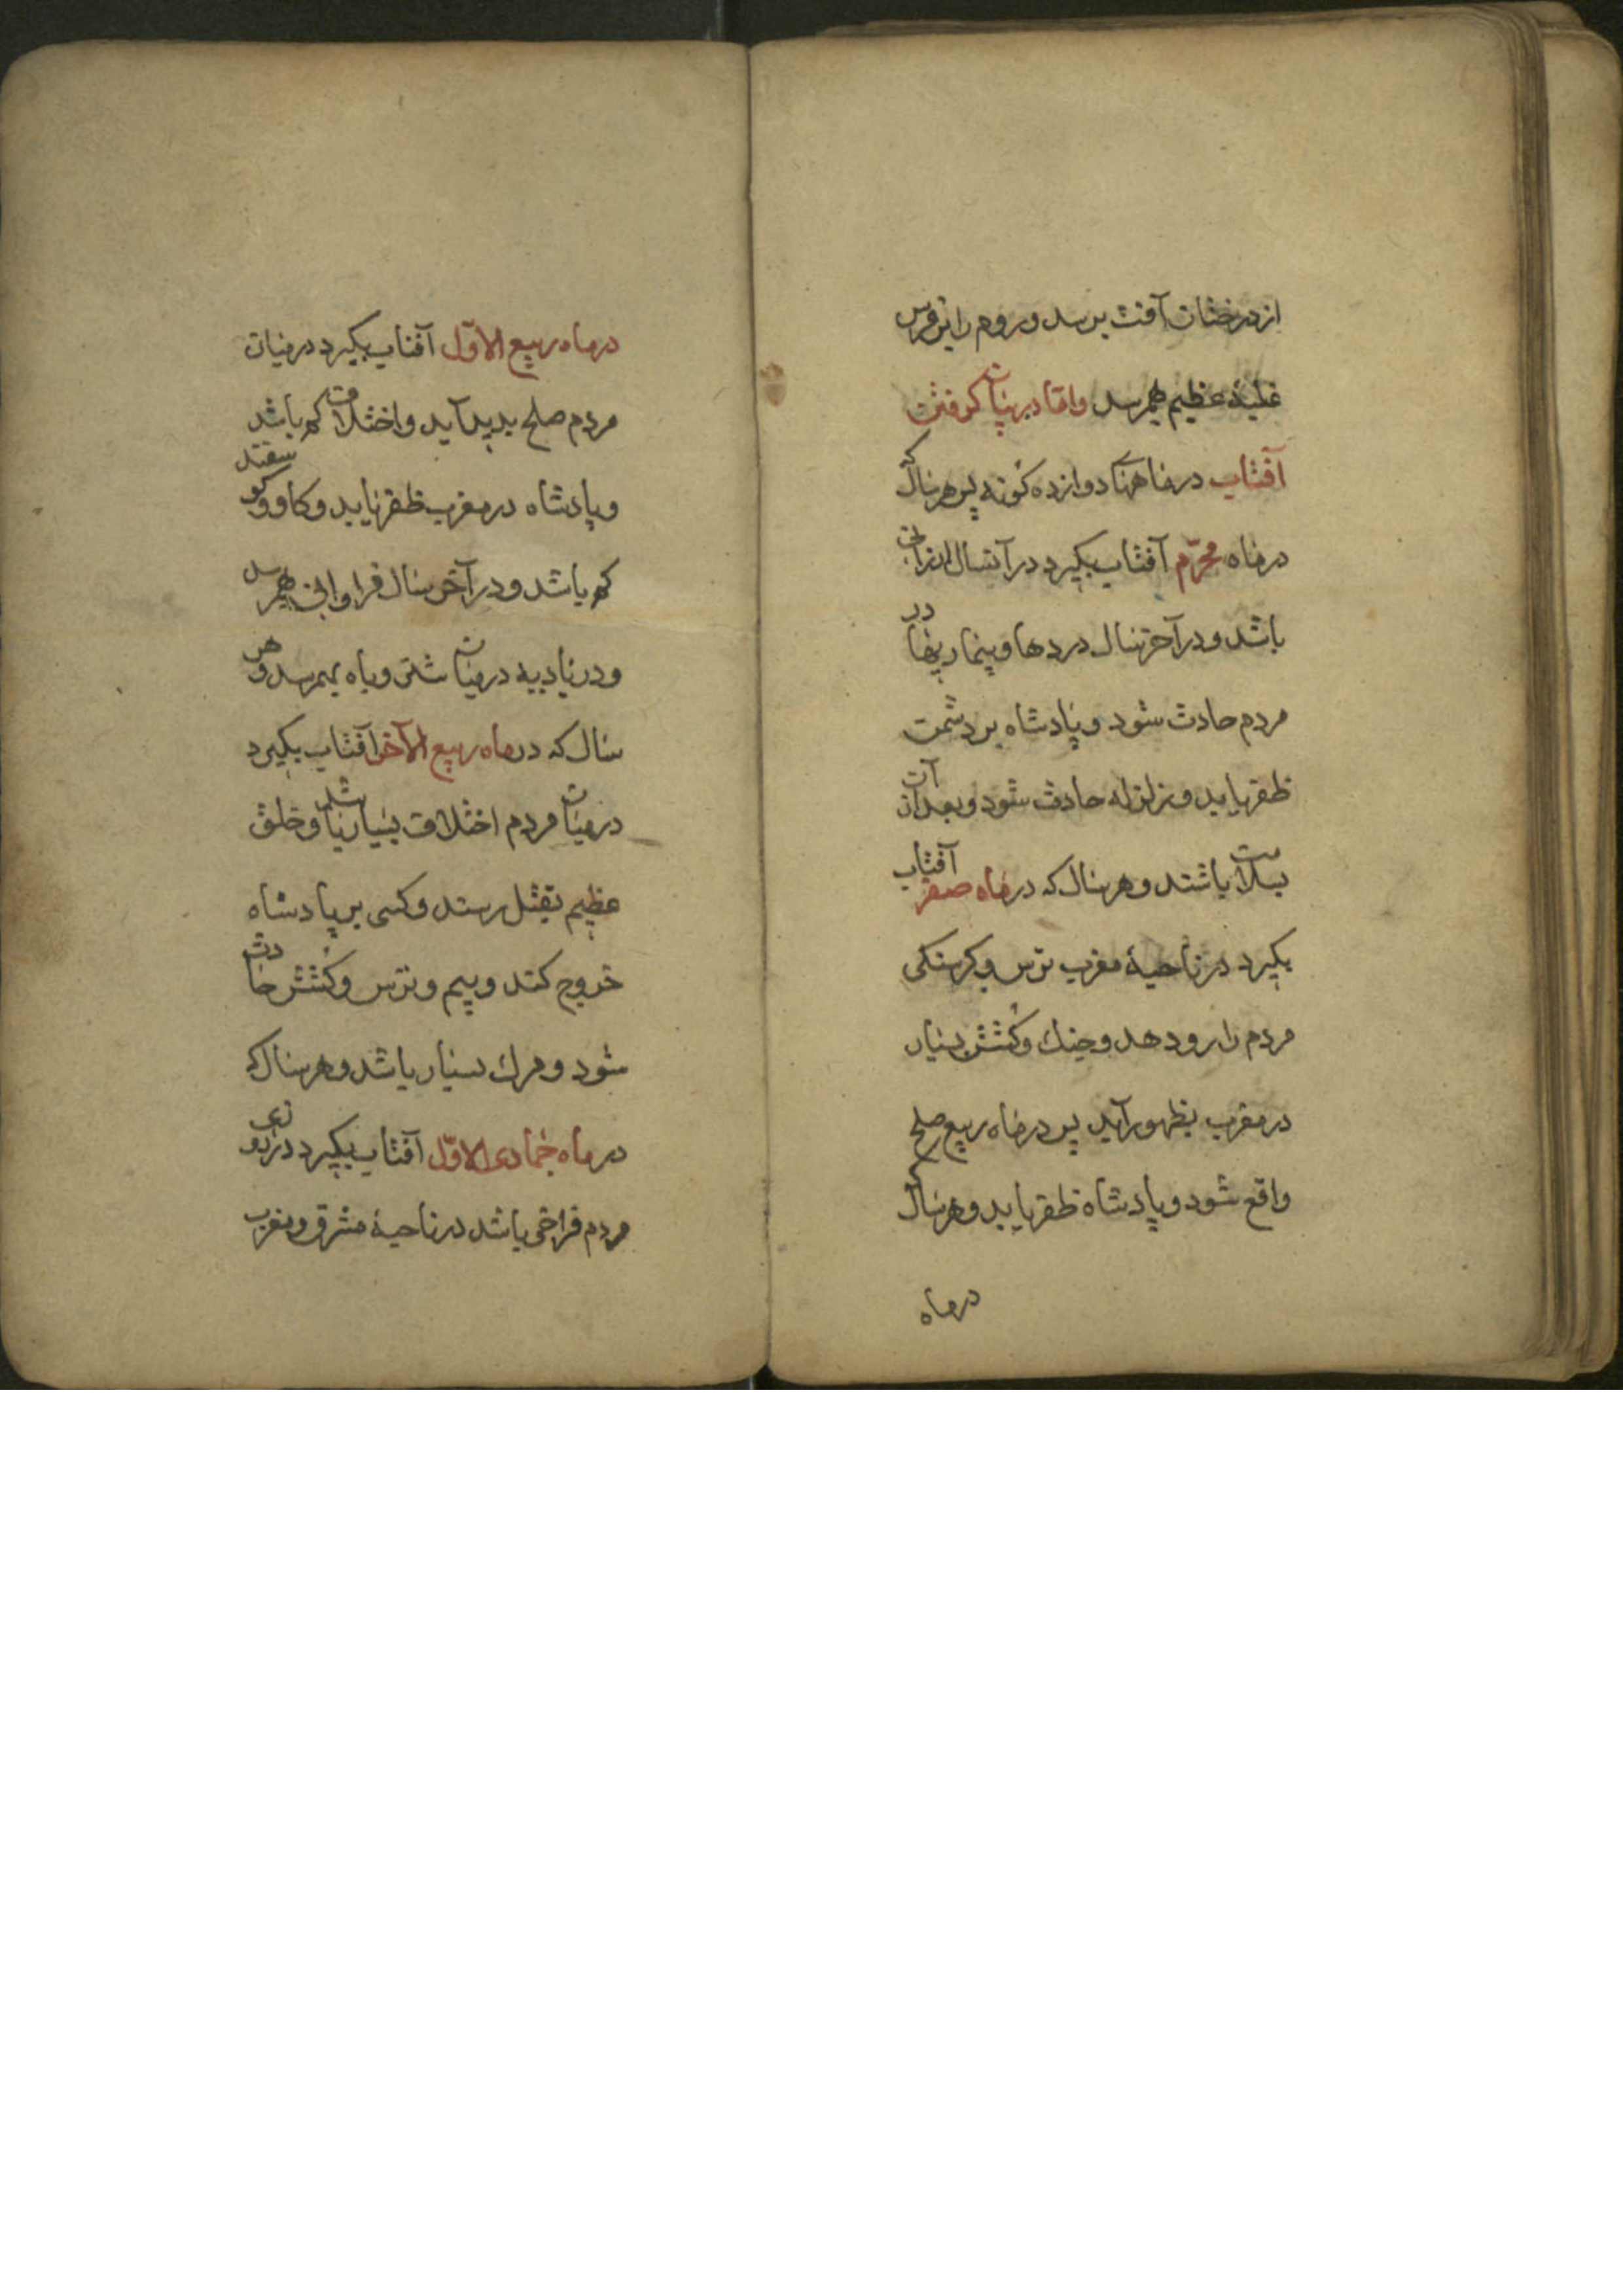 از درختان آفت برسد و روم را بر فرس
غلبهٔ عظیم بهم رسد و اما در بیان گرفتن
آفتاب در ماهها دوازده گونه پس هر سال که
در ماه محرّم آفتاب بگیرد در آنسال ارزانی
باشد و در آخر سال دردها و بیماریها در
مردم حادث شود و پادشاه بر دشمن
ظفر یابد و زلزله حادث شود و بعد از آن
بسلامت باشند و هر سال که در ماه صفر آفتاب
بگیرد در ناحیهٔ مغرب ترس و گرسنگی
مردم را رو دهد و جنگ و کُشش بسیار
در مغرب بظهور آید پس در ماه ربیع صلح
واقع شود و پادشاه ظفر یابد و هر سال که
در ماه
در ماه ربیع الاوّل آفتاب بگیرد در میان
مردم صلح پدید آید و اختلاف کم باشد
و پادشاه در مغرب ظفر یابد و گاو و گوسفند
کم باشد و در آخر سال فراوانی بهم رسد
و در بادیه در میان شتر وباه بهمرسد و هر
سال که در ماه ربیع الآخر آفتاب بگیرد
در میان مردم اختلاف بسیار باشد و خلق
عظیم بقتل رسند و کسی بر پادشاه
خروج کند و بیم و ترس و کُشش حادث
شود و مرگ بسیار باشد و هر سال که
در ماه جُمادی الاوّل آفتاب بگیرد در روزی
مردم فراخی باشد در ناحیهٔ مشرق و مغرب